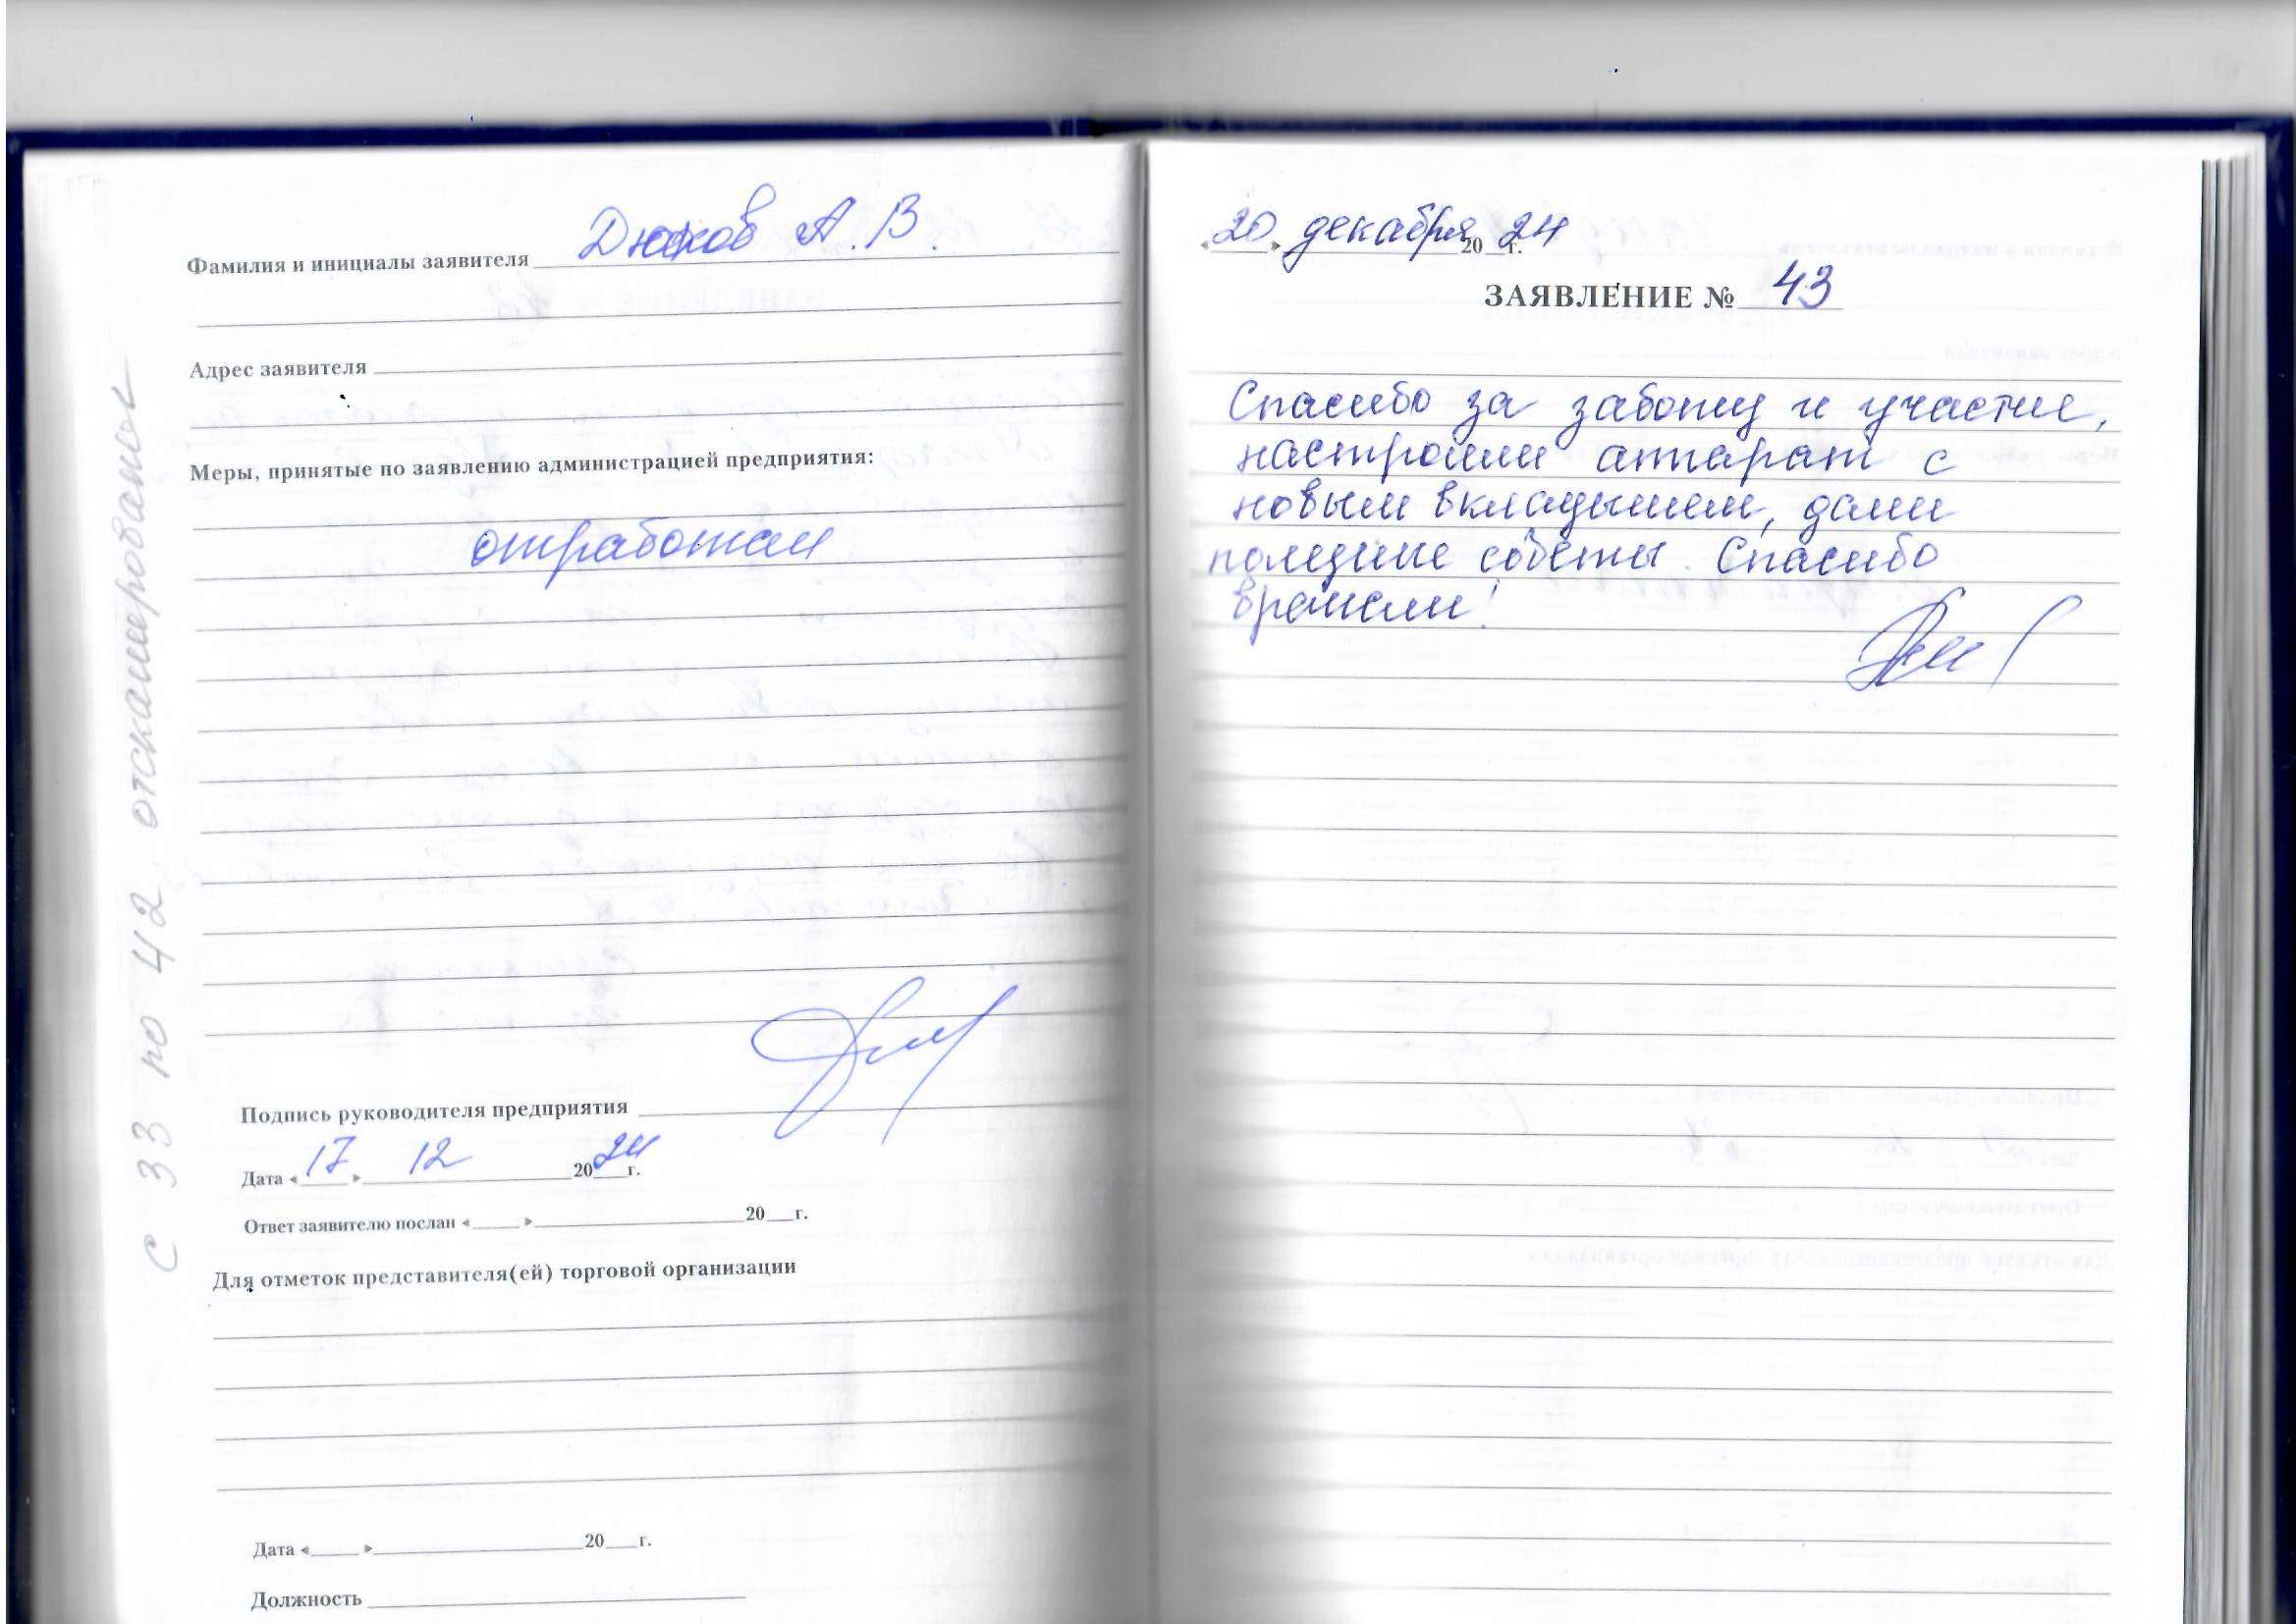 Фамилия и инициалы заявителя Дюков А.В.
Адрес заявителя
Меры, принятые по заявлению администрацией предприятия:
отработан
Подпись руководителя предприятия
Дата «17» 12 2024г.
Ответ заявителю послан «____» 20__г.
Для отметок представителя(ей) торговой организации
Дата «____» 20__г.
Должность
с 33 по 42 отсканировано
«20» декабря 2024г.
ЗАЯВЛЕНИЕ № 43
Спасибо за заботу и участие,
настроили аппарат с
новым вкладышем, дали
полезные советы. Спасибо
врачам!